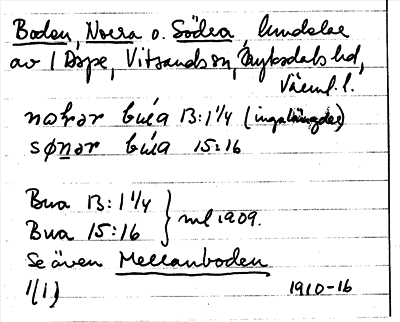 Boden, Norra o. Södra, lundelar
av 1 Aspe, Vitsands sn, Fryksdals hd,
Värml. l.
noṙar búa 13:1 1/4 (inga längder)
sønar búa 15:16
Bua 13:1 1/4
Bua 15:16 } ml 1909.
Se även Mellanboden
1/1) 1910-16